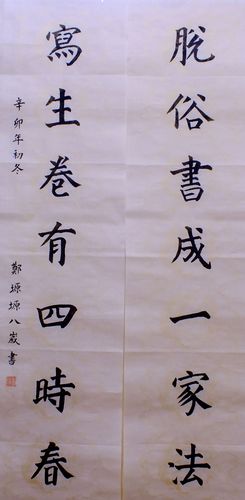 脫俗書成一家法
寫生卷有四時春
辛卯年初冬
鄭塬塬八嵗書